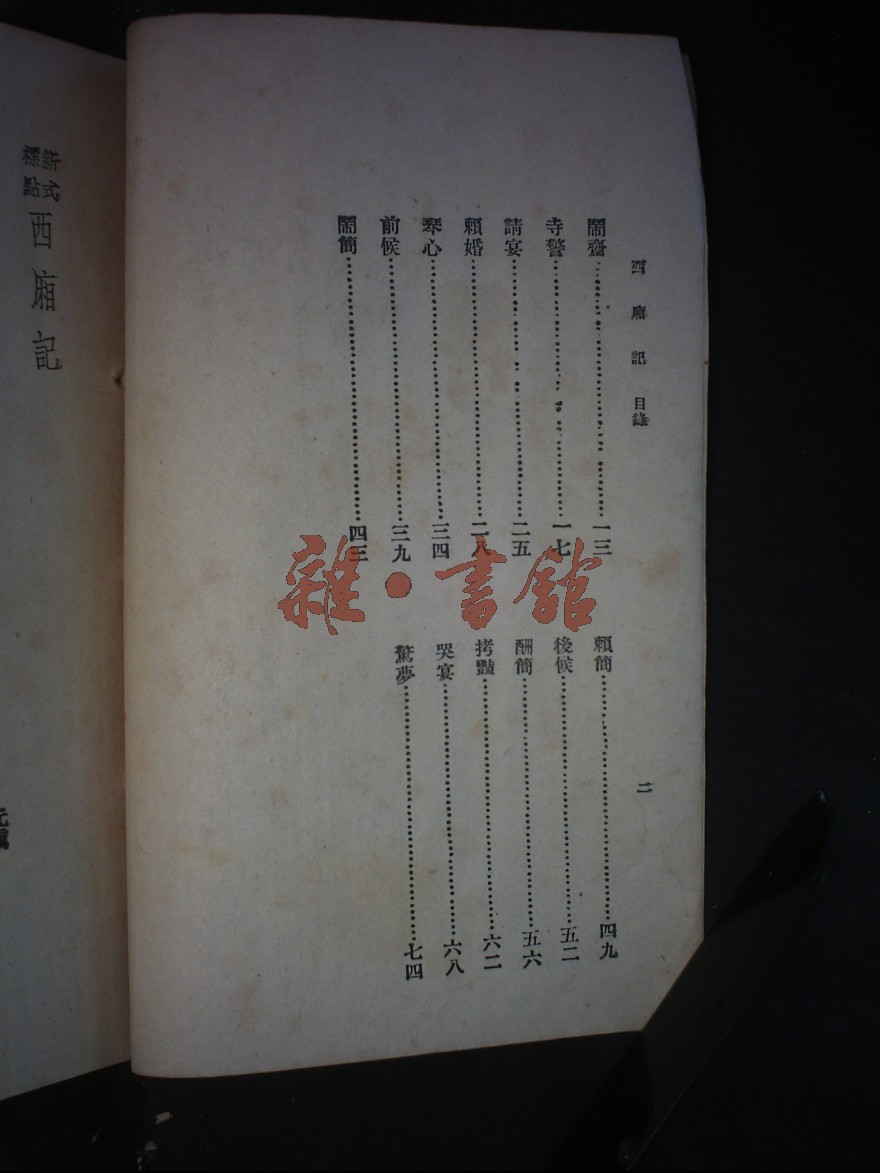 西廂記 目錄
二
鬧齋 一三
寺警 一七
請宴 二五
賴婚 二八
琴心 三四
前候 三九
鬧簡 四三
賴簡 四九
後候 五二
酬簡 五六
拷豔 六二
哭宴 六八
驚夢 七四
新式標點 西廂記
雜·書館